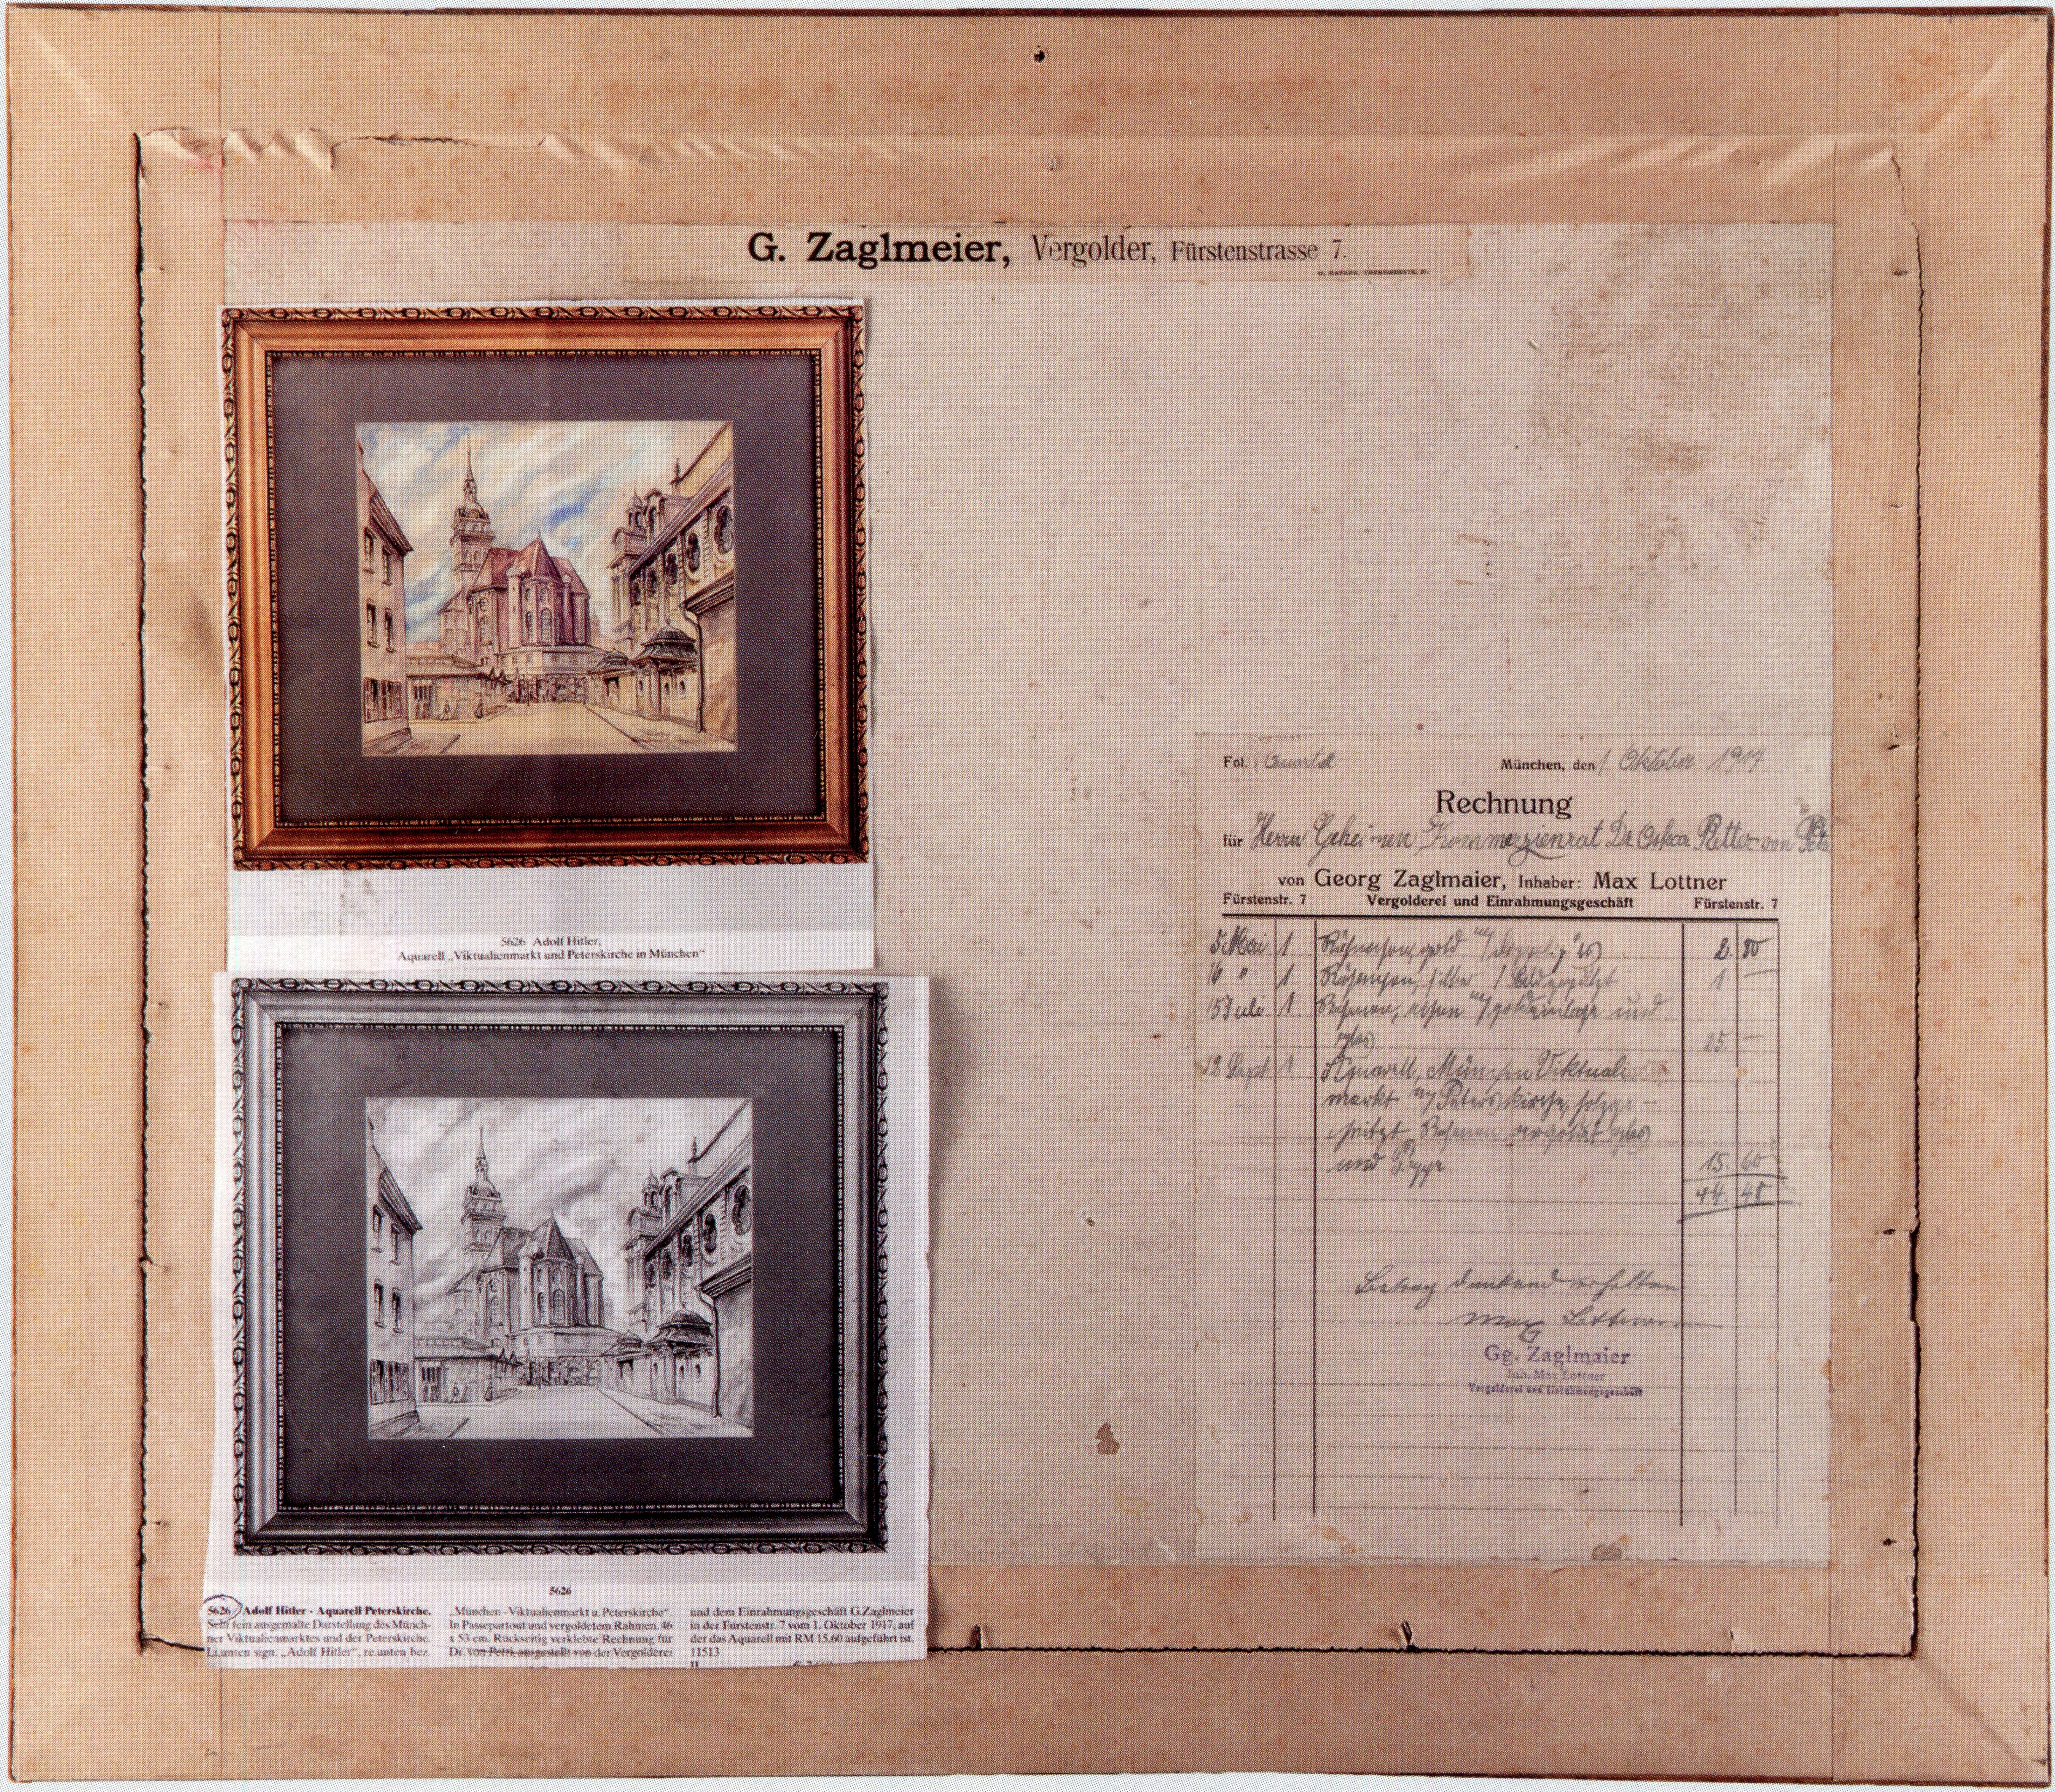 G. Zaglmeier, Vergolder, Fürstenstrasse 7.
5626 Adolf Hitler,
Aquarell „Viktualienmarkt und Peterskirche in München"
5626
5626 Adolf Hitler - Aquarell Peterskirche.
Sehr fein ausgemalte Darstellung des Münch-
ner Viktualienmarktes und der Peterskirche.
Li.unten sign. „Adolf Hitler", re.unten bez.
„München - Viktualienmarkt u. Peterskirche".
In Passepartout und vergoldetem Rahmen. 46
x 53 cm. Rückseitig verklebte Rechnung für
Dr. von Petri, ausgestellt von der Vergolderei
und dem Einrahmungsgeschäft G.Zaglmeier
in der Fürstenstr. 7 vom 1. Oktober 1917, auf
der das Aquarell mit RM 15,60 aufgeführt ist.
11513
Fol. Quartal München, den 1 Oktober 1917
Rechnung
für Herrn Geheimen Kommerzienrat Dr Oskar Ritter von
von Georg Zaglmaier, Inhaber: Max Lottner
Fürstenstr. 7 Vergolderei und Einrahmungsgeschäft Fürstenstr. 7
5 Mai 1 gold 2. 80
16 " 1 1 —
15 Juli 1 Rahmen, und
glas 25. —
12 Sept 1 Aquarell, München Viktuali
markt m/ Peterskirche, holzge-
schnitzt Rahmen vergoldet glas
und 15. 60
44. 40
Betrag dankend erhalten
Max Lottner
Gg. Zaglmaier
Inh. Max Lottner
Vergolderei und Einrahmungsgeschäft